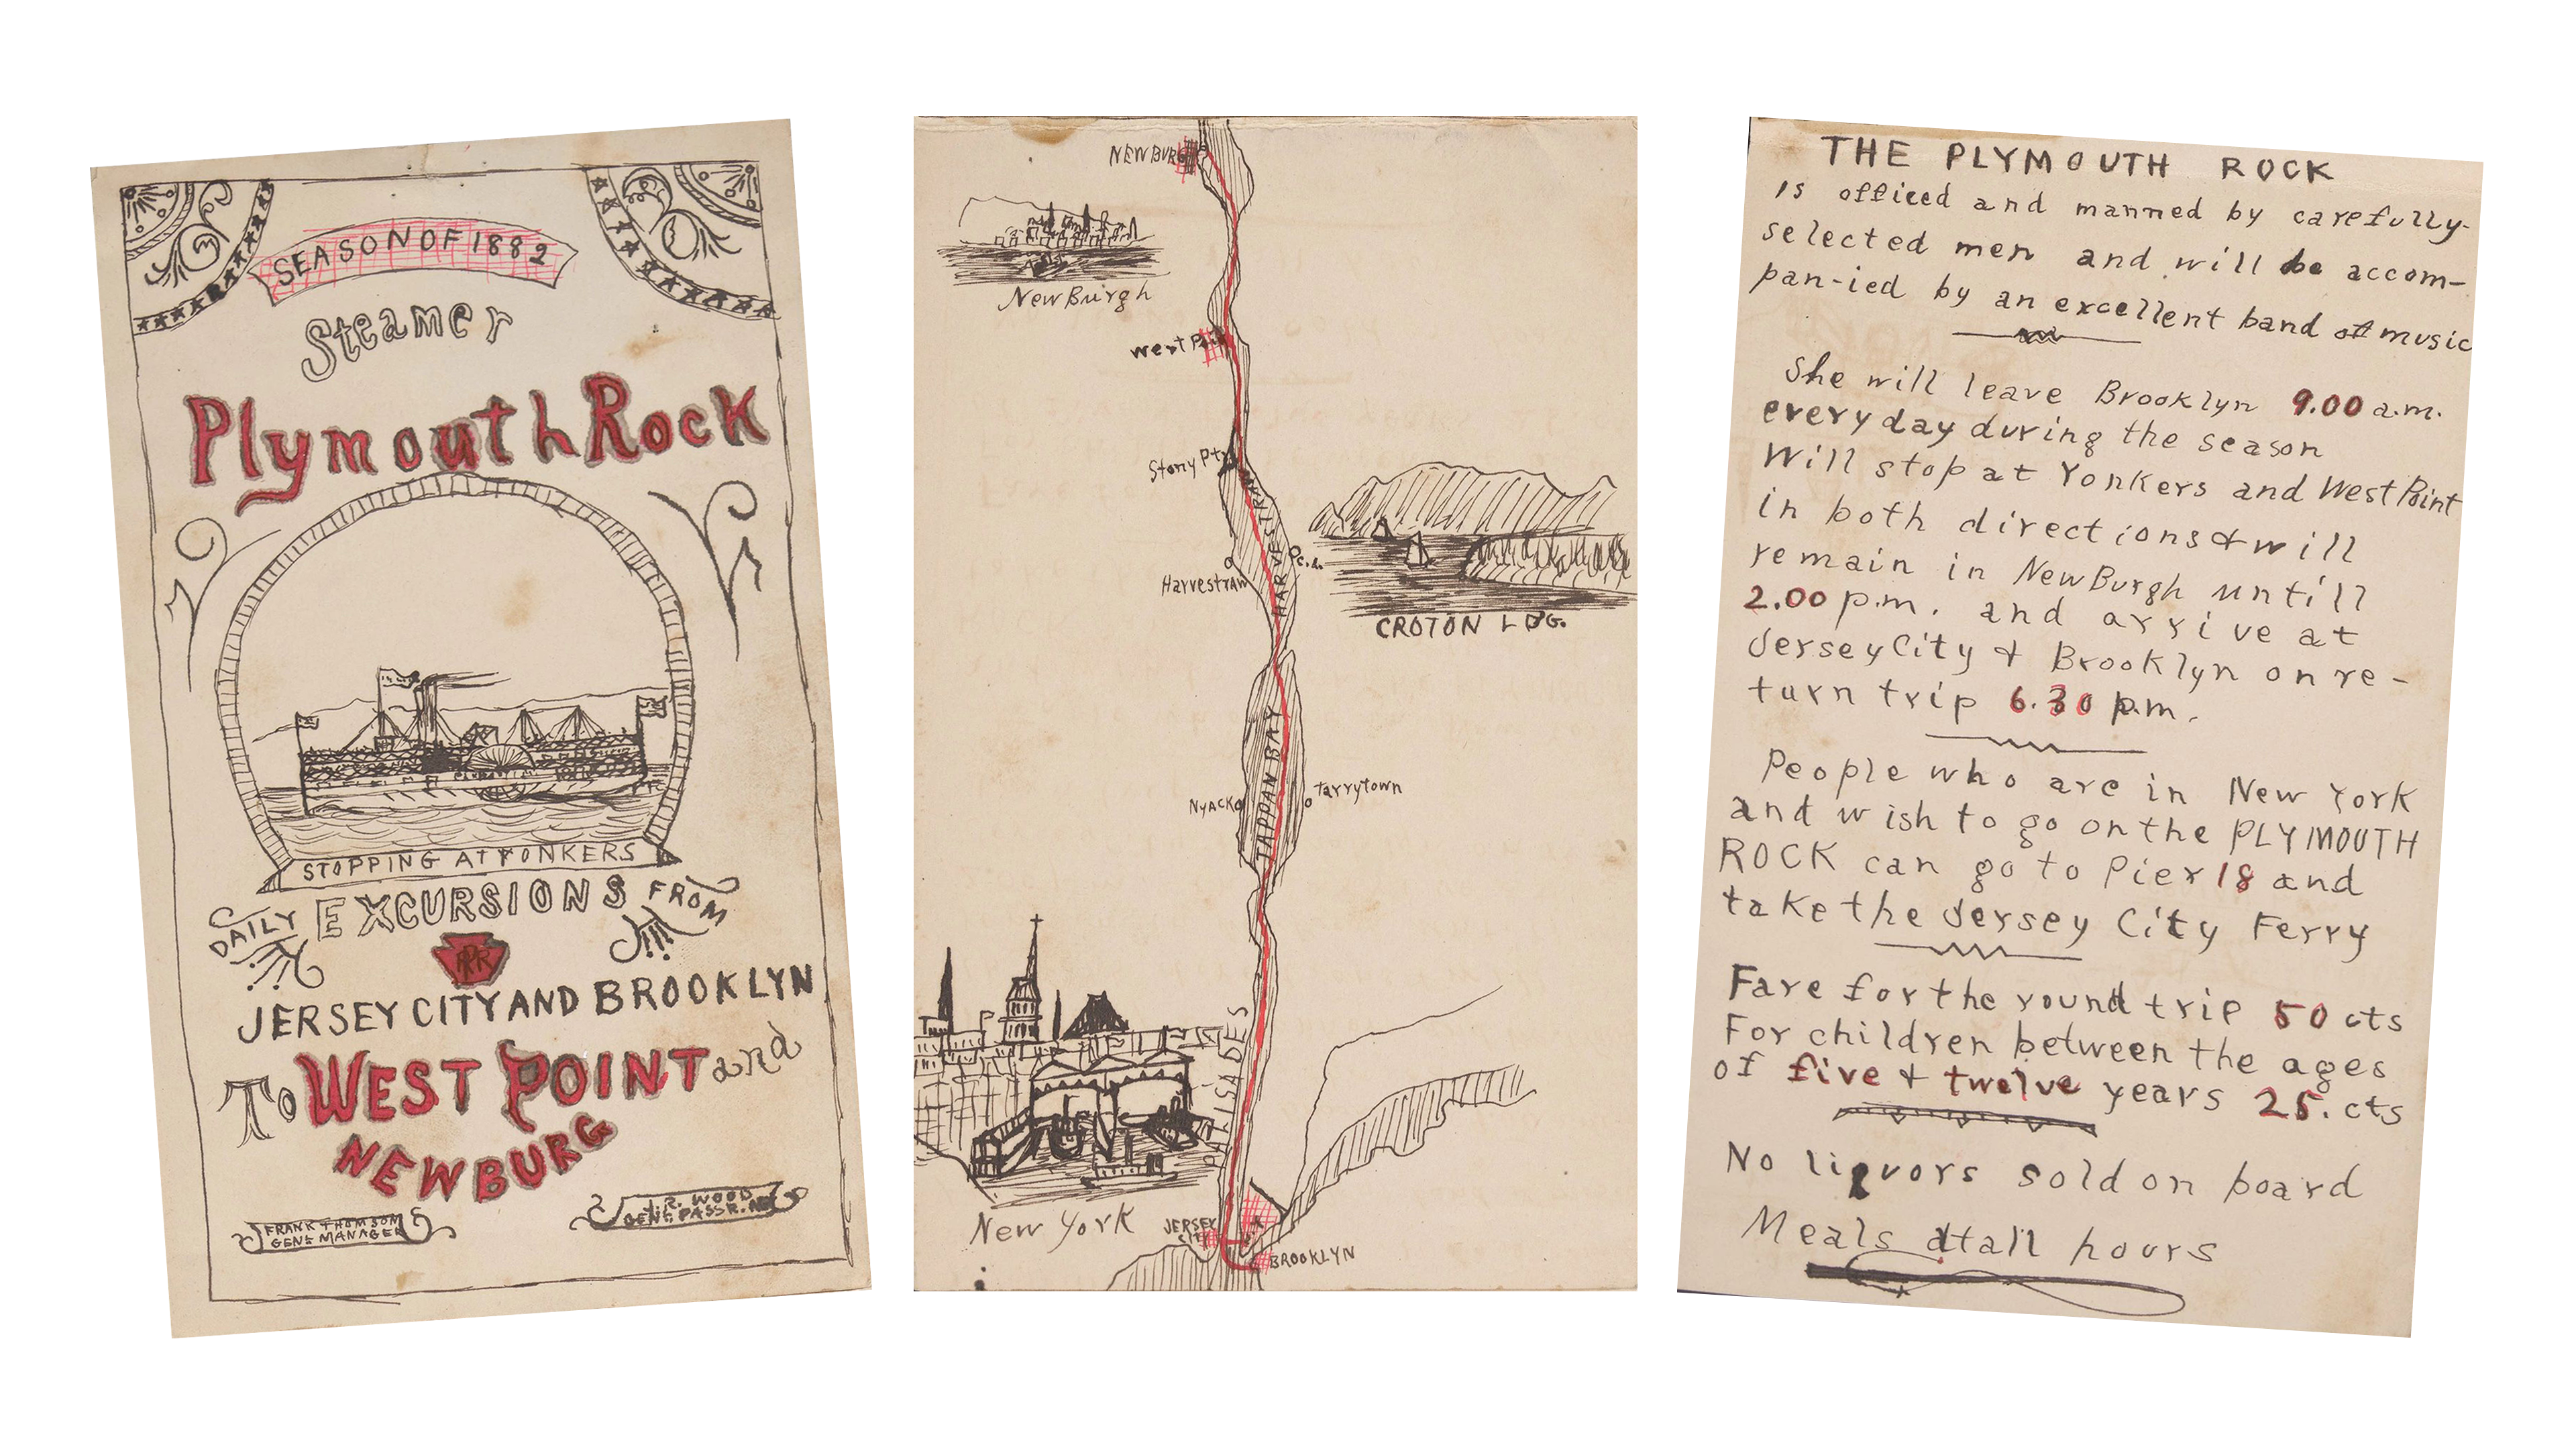 SEASON OF 1882
Steamer
Plymouth Rock
STOPPING AT YONKERS
DAILY EXCURSIONS FROM
PRR
JERSEY CITY AND BROOKLYN
To WEST POINT and
NEWBURG
FRANK THOMSON
GENL MANAGER
J.R. WOOD
GENL PASSR.
NEWBURG
NewBurgh
West Pt.
Stony Pt.
HARVESTRAW
c.l.
Harvestraw
CROTON LDG.
TAPPAN BAY
Nyack
Tarrytown
PALISADES
New York
JERSEY
CITY
BROOKLYN
THE PLYMOUTH ROCK
is officed and manned by carefully-
selected men and will be accom-
pan-ied by an excellent band of music
She will leave Brooklyn 9.00 a.m.
every day during the season
Will stop at Yonkers and West Point
in both directions & will
remain in NewBurgh untill
2.00 p.m. and arrive at
Jersey City & Brooklyn on re-
turn trip 6.30 p.m.
People who are in New York
and wish to go on the PLYMOUTH
ROCK can go to Pier 18 and
take the Jersey City Ferry
Fare for the round trip 50 cts
For children between the ages
of five & twelve years 25. cts
No liquors sold on board
Meals at all hours